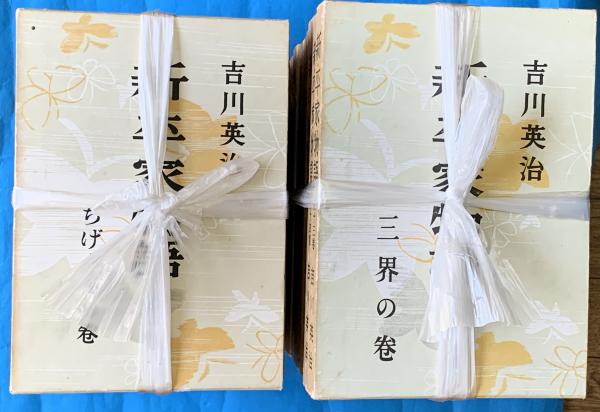 吉川英治
新平家物語
ちげ
巻
吉川英治
新平家物
三界の巻
新平家物語